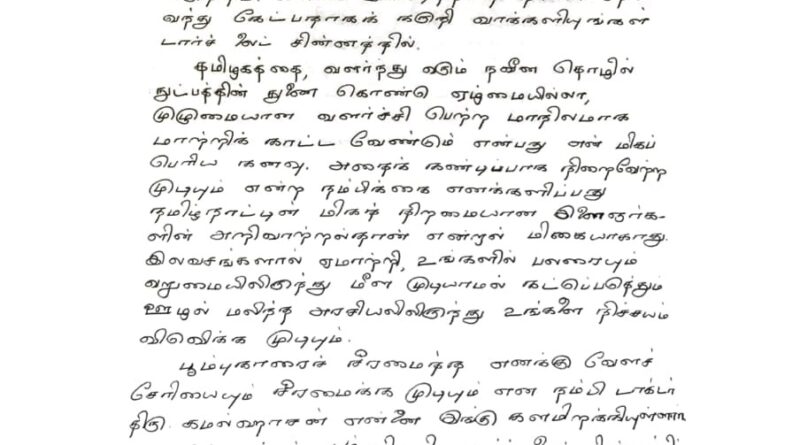 வந்து கேட்பதாகக் கருதி வாக்களியுங்கள்
டார்ச் லைட் சின்னத்தில்.
தமிழகத்தை, வளர்ந்து வரும் நவீன தொழில்
நுட்பத்தின் துணை கொண்டு ஏழ்மையில்லா,
முழுமையான வளர்ச்சி பெற்ற மாநிலமாக
மாற்றிக் காட்ட வேண்டும் என்பது என் மிகப்
பெரிய கனவு. அதைக் கண்டிப்பாக நிறைவேற்ற
முடியும் என்ற நம்பிக்கை எனக்களிப்பது
தமிழ்நாட்டின் மிகத் திறமையான இளைஞர்க-
ளின் அறிவாற்றல்தான் என்றால் மிகையாகாது.
இலவசங்களால் ஏமாற்றி, உங்களில் பலரையும்
வறுமையிலிருந்து மீள முடியாமல் கட்டிப்படுத்தும்
ஊழல் மலிந்த அரசியலிலிருந்து உங்களை நிச்சயம்
விடுவிக்க முடியும்.
பூம்புகாரைச் சீரமைத்த எனக்கு வேளச்
சேரியையும் சீரமைக்க முடியும் என நம்பி டாக்டர்
திரு. கமலஹாசன் என்னை இங்கு களமிறக்கியுள்ளார்